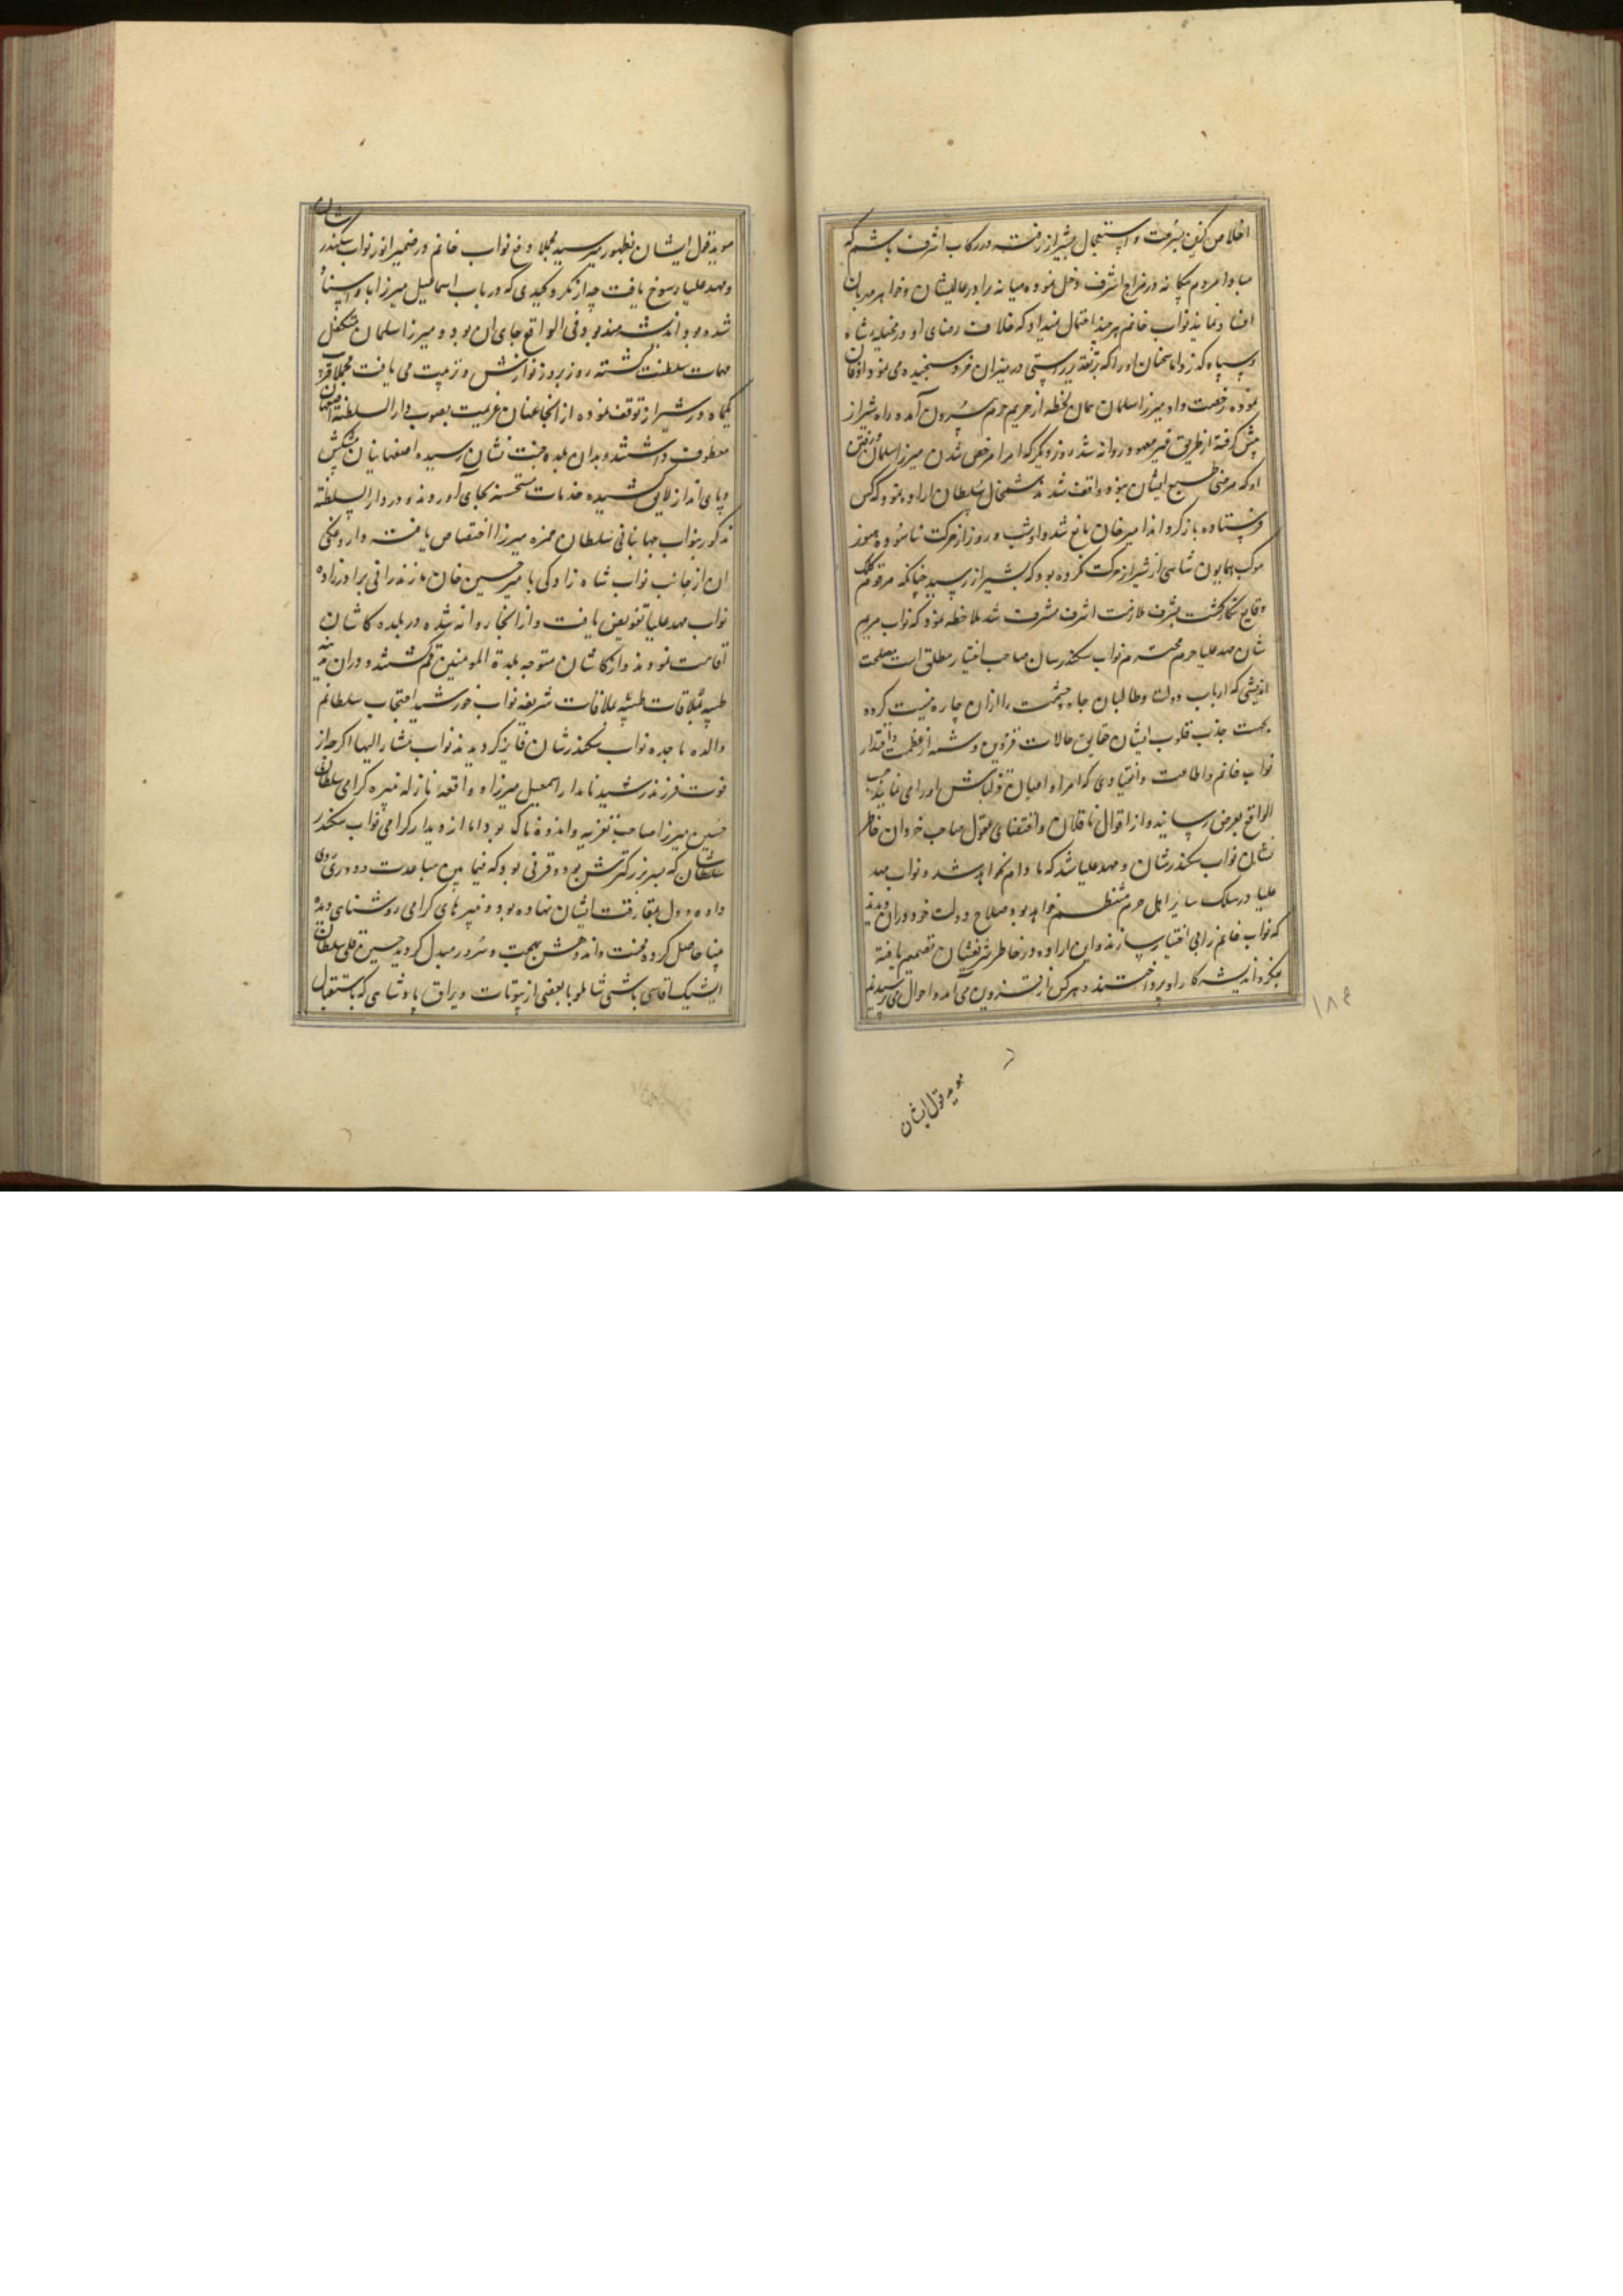 اخلاص کیش بسرعت و استعجال بشیراز رفته در رکاب اشرف باشم که
مبادا مردم بیگانه در مزاج اشرف دخل نموده میانه برادر عالیشان و خواهر مهربان
افساد نمایند نواب خانم هر چند احتمال میداد که خلاف رضای او در مخیله شاه
و سپاه گذرد اما سخنان او را که بتقدیر راستی در میزان خرد سنجیده می نمود اذعان
نموده رخصت داد میرزا سلمان همان لحظه از حریم حرم بیرون آمده راه شیراز
پیش گرفته از طریق غیر معهود روانه شد روز دیگر که امرا از مرخص شدن میرزا سلمان و رفتن
او که مرضی طبع ایشان نبود واقف شدند شمخال سلطان اراده نمود که کس
فرستاده باز گرداند امیر خان مانع شد و او شب و روز از حرکت نیاسوده هنوز
موکب همایون شاهی از شیراز حرکت نکرده بود که بشیراز رسید چنانکه مرقوم کلک
وقایع نگار گشت بشرف ملازمت اشرف مشرف شد ملاحظه نمود که نواب مریم
شان مهد علیا حرم محترم نواب سکندر شان صاحب اختیار مطلق است بمصلحت
اندیشی که ارباب دولت و طالبان جاه و حشمت را از آن چاره نیست کرده
بجهت جذب قلوب ایشان حقایق حالات قزوین و شمه از عظمت و اقتدار
نواب خانم و اطاعت و انقیادی که امرا و اعیان قزلباش او را می نمایند حسب
الواقع بعرض رسانید و از اقوال ناقلان و اقتضای عقول صاحب خردان خاطر
نشان نواب سکندر شان و مهد علیا شد که ما دام نخواهد شد و نواب مهد
علیا در سلک سایر اهل حرم منتظم خواهد بود صلاح دولت خود در آن دیدند
که نواب خانم را بی اختیار سازند و این اراده در خاطر شریفشان تصمیم یافته
بفکر و اندیشه کار او پرداختند و هر کس از قزوین می آمد و احوال می پرسیدند
موید قول ایشان
۱۸۴
موید قول ایشان بظهور میرسید مجملا دفع نواب خانم در ضمیر انور نواب سکندر شان
و مهد علیا رسوخ یافت چه از مکر و کیدی که در باب اسماعیل میرزا با و اسناد
شده بود اندیشمند بود فی الواقع جای آن بود و میرزا سلمان متکفل
مهمات سلطنت گشته روز بروز نوازش و تربیت می یافت مجملا قریب
یکماه در شیراز توقف نموده از آنجا عنان عزیمت بصوب دار السلطنه اصفهان
معطوف داشتند و بدان بلده جنت نشان رسیده اصفهانیان پیشکش
و پای انداز لایق کشیده خدمات مستحسنه بجای آوردند و دار السلطنة
مذکور بنواب جهانبانی سلطان حمزه میرزا اختصاص یافته داروغگی
آن از جانب نواب شاه زادگی با میر حسین خان مازندرانی برادر زاده
نواب مهد علیا تفویض یافت و از آنجا روانه شده در بلده کاشان
اقامت نمودند و از کاشان متوجه بلدة المومنین قم گشتند و در آن مدینه
طیبه بملاقات شریفه نواب خورشید احتجاب سلطانم
والده ماجده نواب سکندر شان فایز گردیدند نواب مشار الیها اگر چه از
فوت فرزند رشید نامدار اسمعیل میرزا و واقعه نازله نبیره گرامی سلطان
حسین میرزا صاحب تعزیه و اندوهناک بود اما از دیدار گرامی نواب سکندر
شان که پسر بزرگترش بود و قرنی بود که فیما بین مباعدت و دوری روی
داده و دل بمفارقت ایشان نهاده بود و نبیرهای گرامی روشنای دیده
مینا حاصل کرده محنت و اندوهش ببهجت و سرور مبدل گردید حسین قلی سلطان
ایشیک آقاسی باشی شاملو با بعضی از بیوتات و یراق پادشاهی که باستقبال